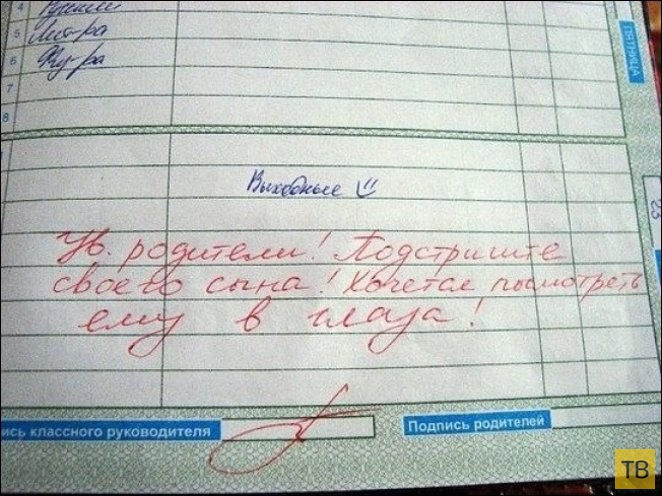 4
5 Лит-ра
6 Физ-ра
7
8
ПЯТНИЦА
Выходные
23
Ув. родители! Подстригите
своего сына! Хочется посмотреть
ему в глаза!
ись классного руководителя
Подпись родителей
ТВ